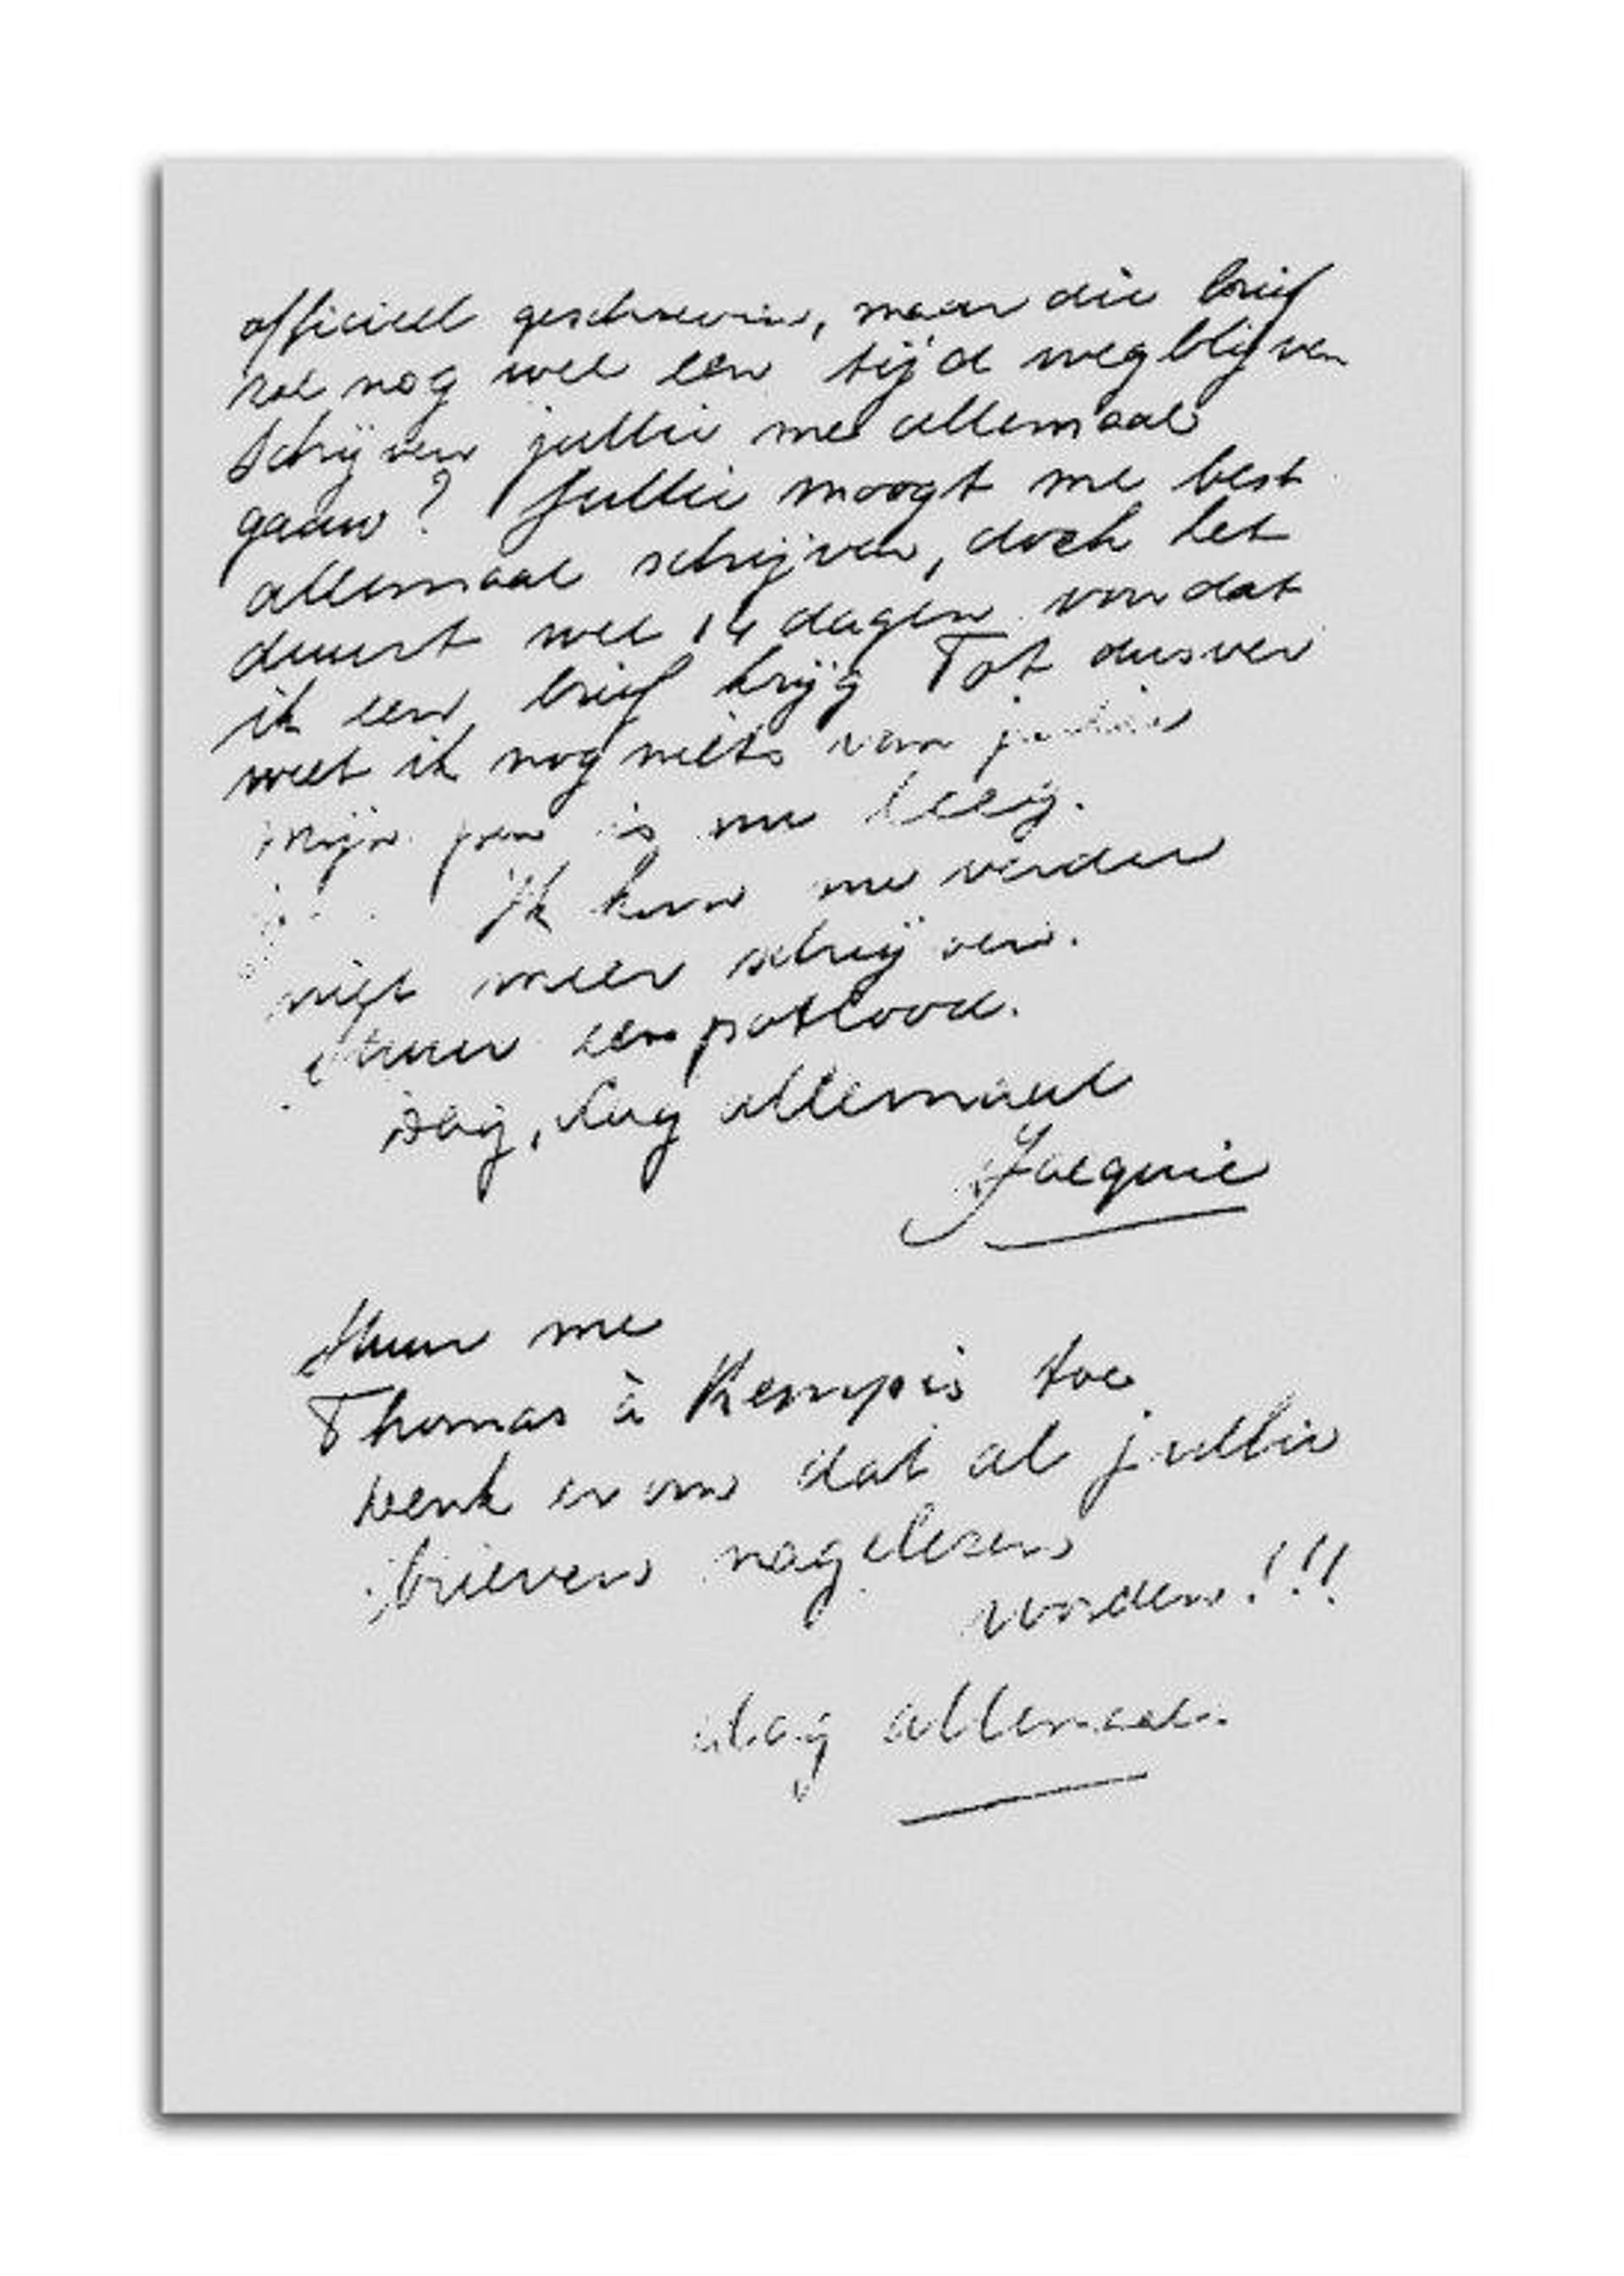 officieel geschreven, maar die brief
zal nog wel een tijd wegblijven
Schrijven jullie me allemaal
gauw? Jullie moogt me best
allemaal schrijven, doch het
duurt wel 14 dagen voordat
ik een brief krijg Tot dusver
weet ik nog niets van jullie
Mijn pen is nu leeg.
Ik kan nu verder
niet meer schrijven.
Stuur een potlood.
Dag, dag allemaal
Jacquie
Stuur me
Thomas à Kempis toe
Denk er om dat al jullie
brieven nagelezen
worden!!!
dag allemaal.